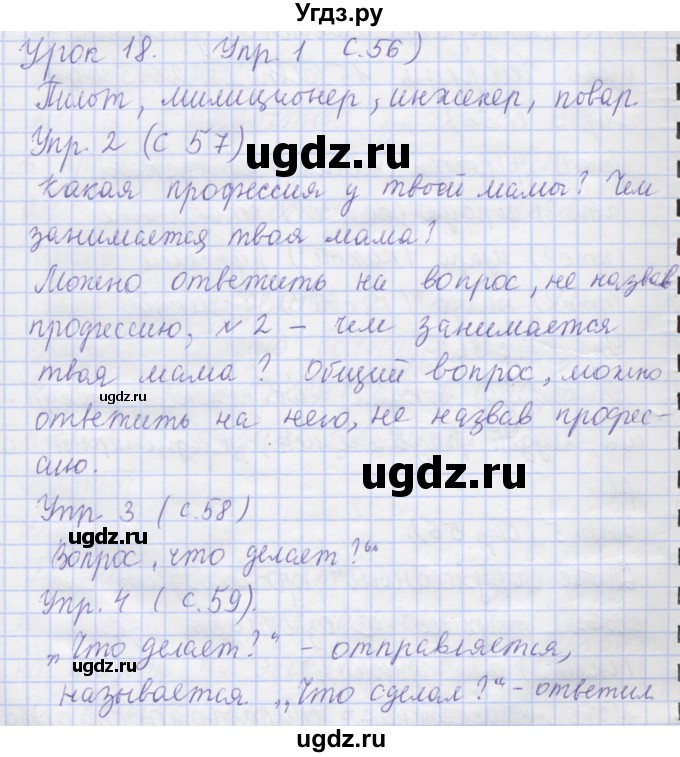 Угдз.ру
Урок 18. Упр. 1 с.56)
Пилот, милиционер, инженер, повар
Упр. 2 (с 57)
ugdz.ru
Какая профессия у твоей мамы? Чем
занимается твоя мама?
Можно ответить на вопрос, не назвав
профессию, №2 – чем занимается
твая мама? Общий вопрос, можно
ugdz.ru
ответить на него, не назвав профес-
сию.
ugdz.ru
Упр 3 (с.58)
ugdz.ru
Вопрос, что делает?"
Упр. 4 (с.59).
„Что делает?" - отправляется,
ugdz.ru
называется „Что сделал?" - ответил
ugdz.ru